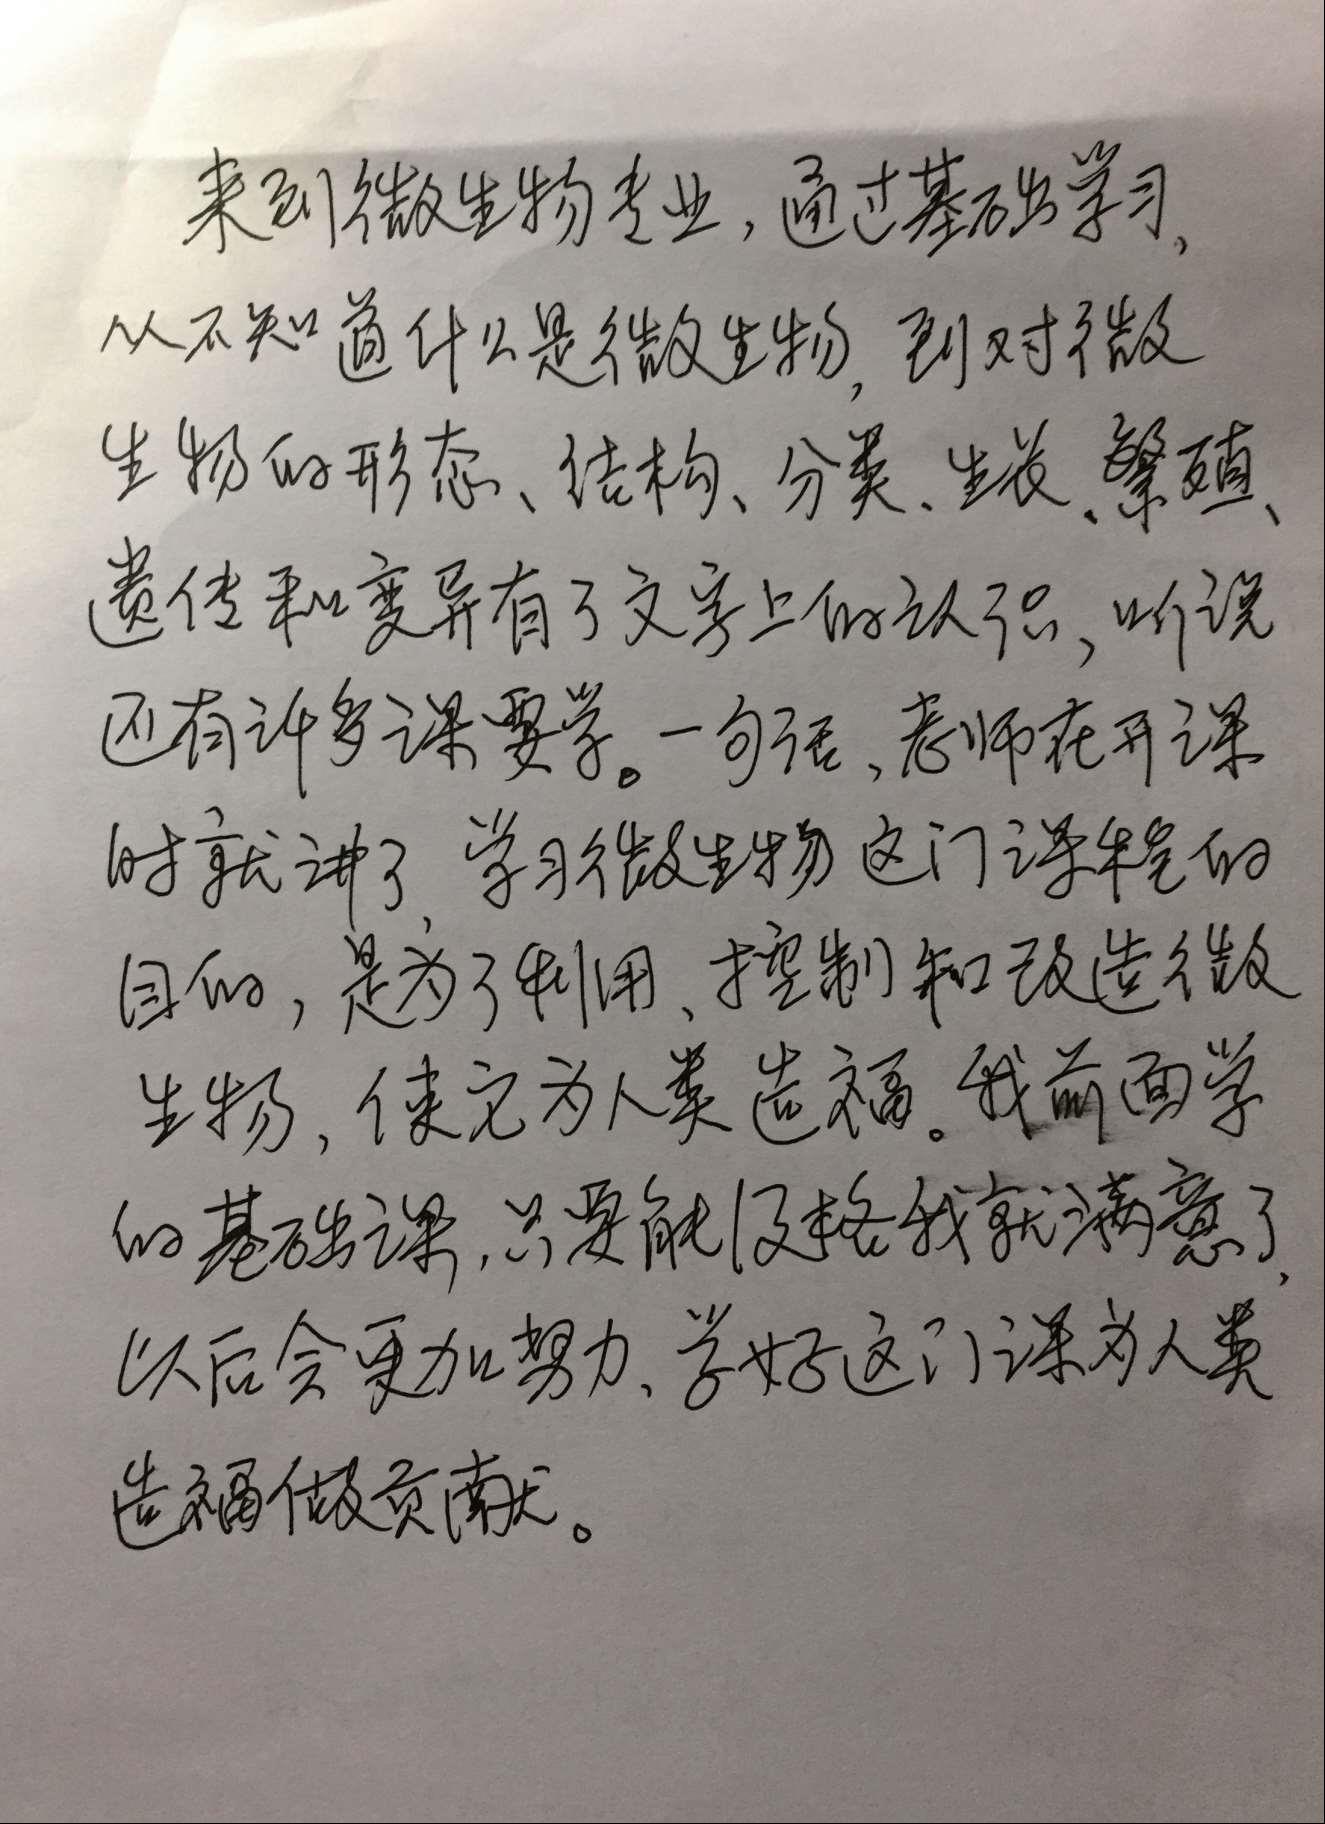 来到微生物专业，通过基础学习，
从不知道什么是微生物，到对微
生物的形态、结构、分类、生长、繁殖、
遗传和变异有了文字上的认识，听说
还有许多课要学。一句话，老师在开课
时就讲了，学习微生物这门课程的
目的，是为了利用、控制和改造微
生物，使它为人类造福。我前面学
的基础课，只要能及格我就满意了，
以后会更加努力、学好这门课为人类
造福做贡献。